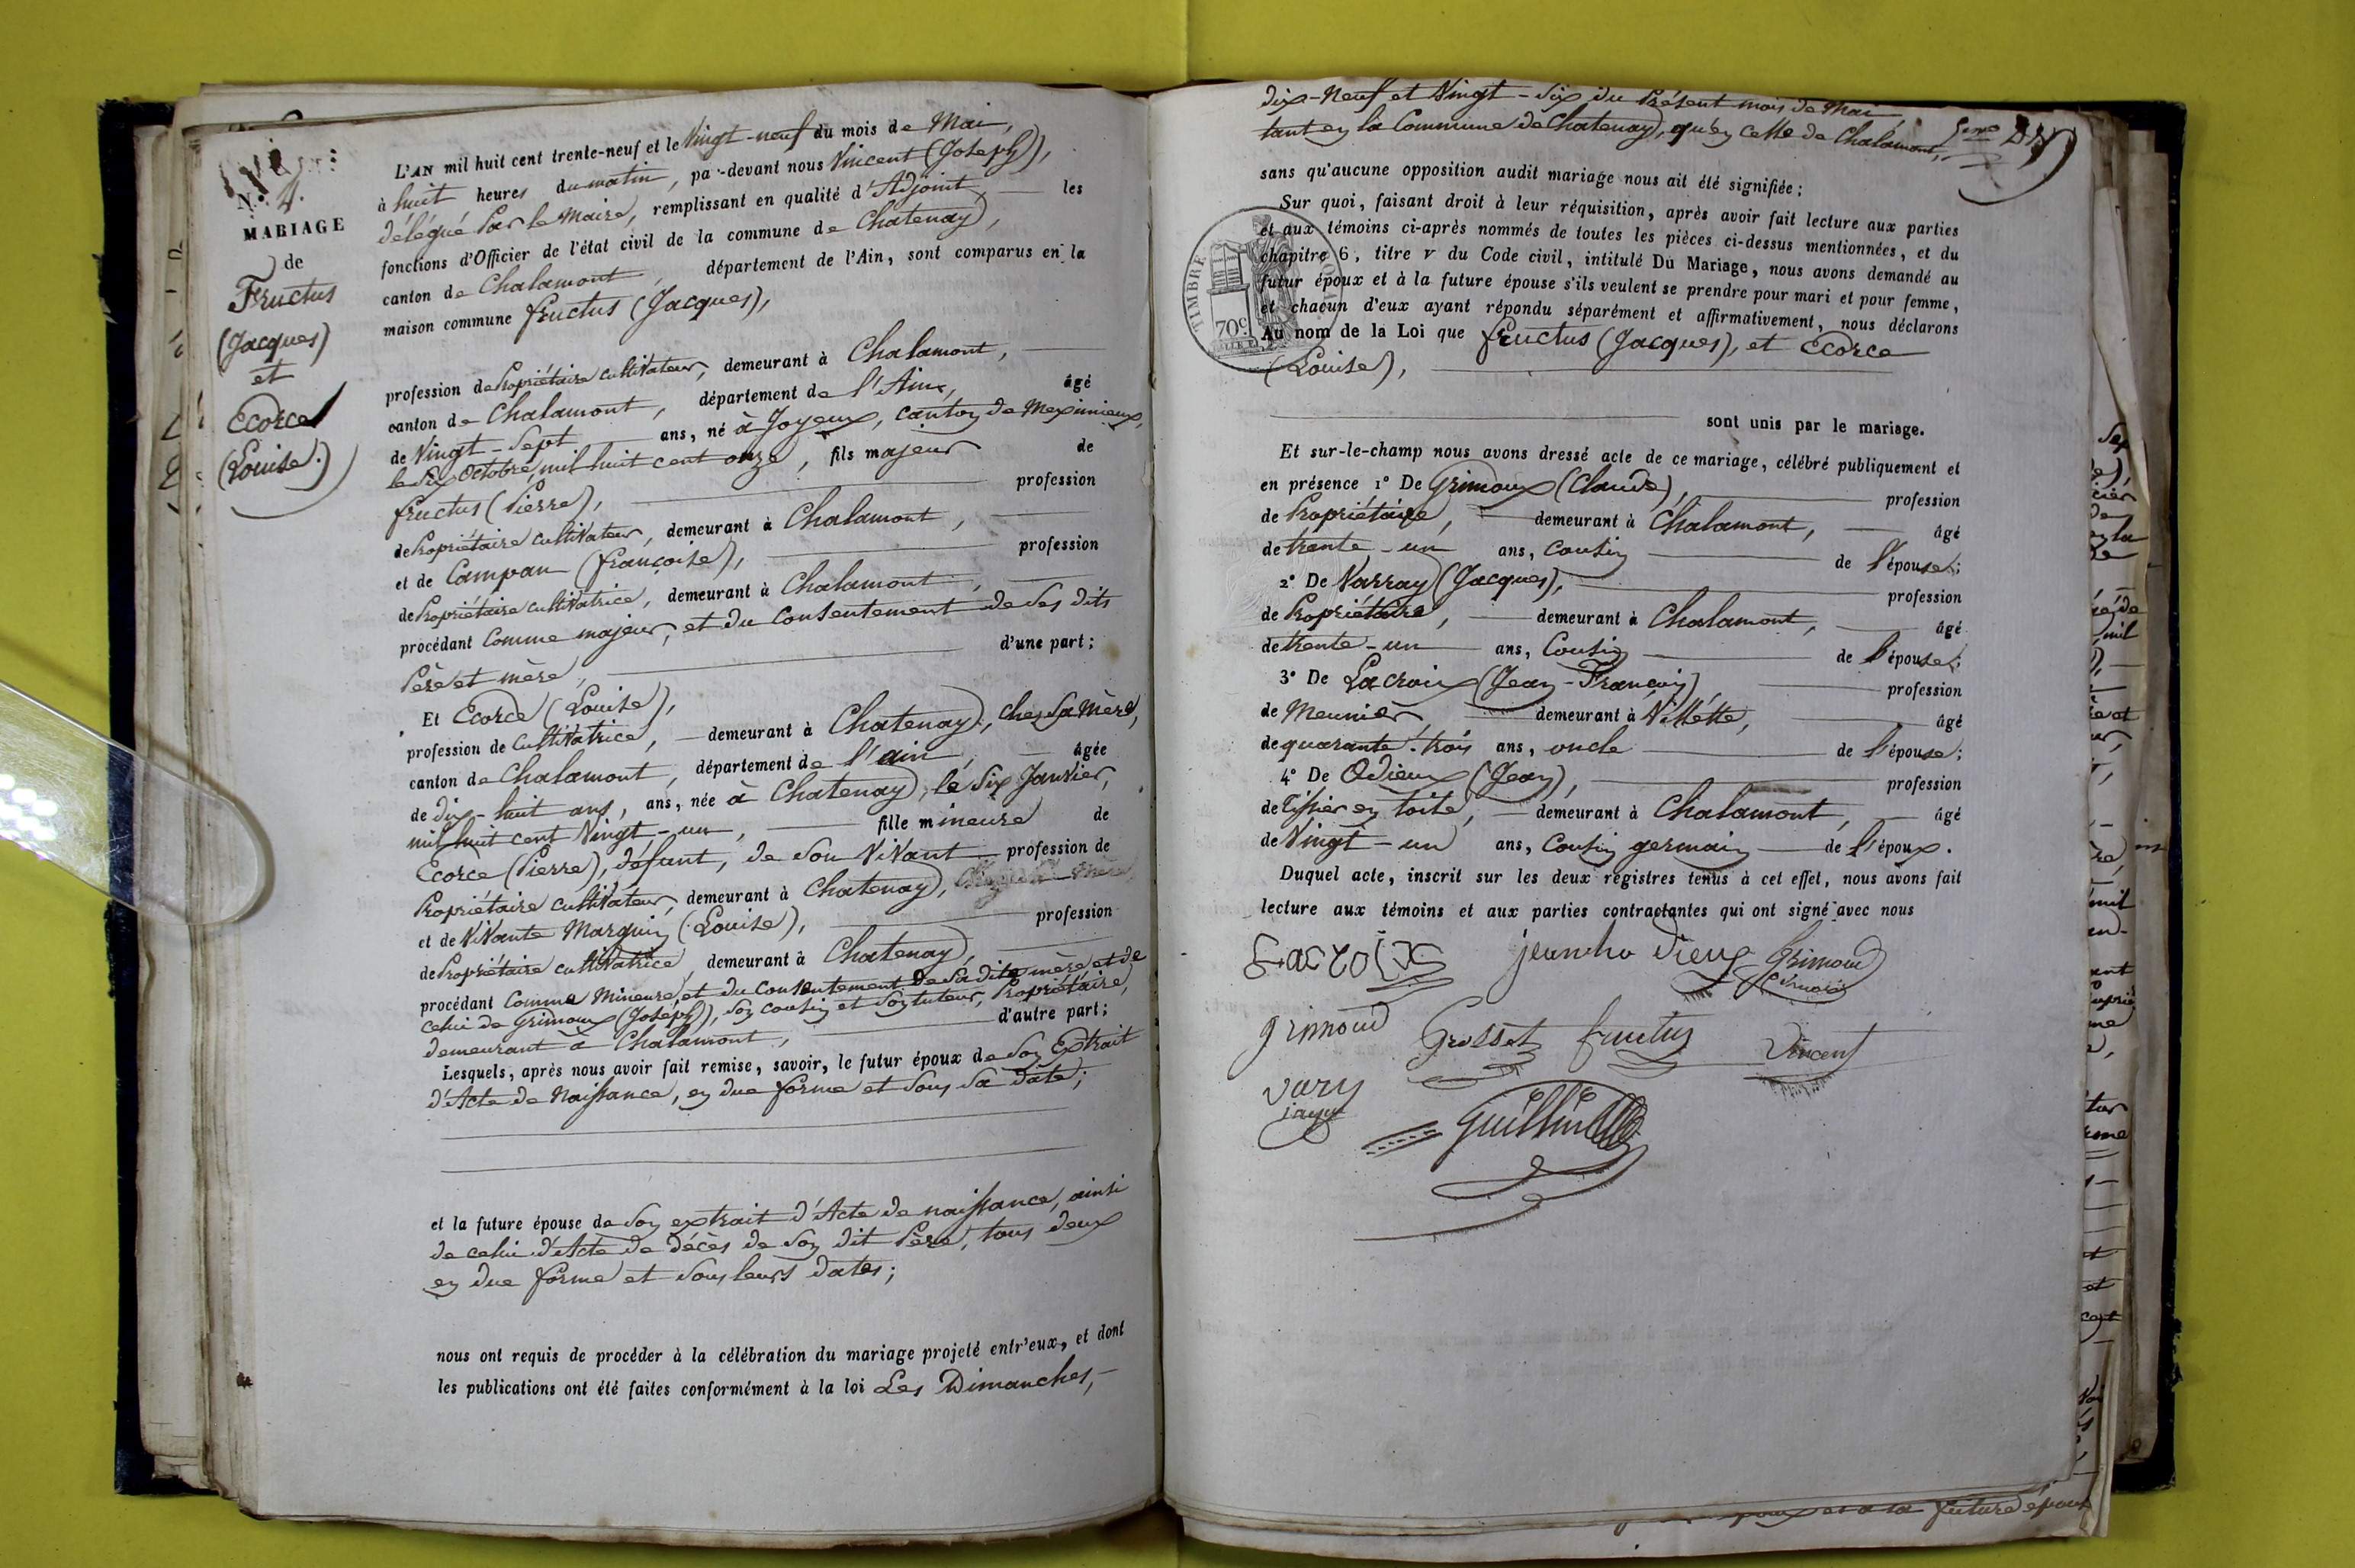 N.º 4.
MARIAGE
de
Fructus
(Jacques)
et
Ecorce
(Louise.)
L'AN mil huit cent trente-neuf et le Vingt-neuf du mois de Mai,
à huit heures du matin, pa-devant nous Vincent (Joseph),
délégué Par le Maire, remplissant en qualité d'Adjoint, les
fonctions d'Officier de l'état civil de la commune de Chatenay,
canton de Chalamont, département de l'Ain, sont comparus en la
maison commune fructus (Jacques),
profession de Propriétaire cultivateur, demeurant à Chalamont,
canton de Chalamont, département de l'Ain, âgé
de Vingt-Sept ans, né à Joyeux, canton de Meximieux,
le Six Octobre mil huit cent onze, fils majeur de
fructus (Pierre), profession
de Propriétaire cultivateur, demeurant à Chalamont,
et de Campan (françoise), profession
de Propriétaire cultivatrice, demeurant à Chalamont,
procédant Comme majeur, et du Consentement de Ses dits
Père et mère, d'une part;
Et Ecorce (Louise),
profession de Cultivatrice, demeurant à Chatenay, chez Sa Mère,
canton de Chalamont, département de l'ain, âgée
de dix-huit ans, ans, née à Chatenay, le Six Janvier,
mil huit cent Vingt-un, fille mineure de
Ecorce (Pierre), défunt, de Son Vivant profession de
Propriétaire cultivateur, demeurant à Chatenay,
et de Vivante Marguin (Louise), profession
de Propriétaire cultivatrice, demeurant à Chatenay,
procédant Comme Mineure, et du Consentement de Sa dite mère et de
celui de Grimoux (Joseph), Son cousin et Son tuteur, Propriétaire,
demeurant à Chalamont, d'autre part;
Lesquels, après nous avoir fait remise, savoir, le futur époux de Son Extrait
d'Acte de Naissance, en due forme et Sous Sa date;
et la future épouse de Son extrait d'Acte de naissance, ainsi
de celui d'Acte de décès de Son dit Père, tous deux
en due forme et Sous leurs dates;
nous ont requis de procéder à la célébration du mariage projeté entr'eux, et dont
les publications ont été faites conformément à la loi Les Dimanches,
dix-Neuf et Vingt-Six du Présent mois de Mai
tant en la Commune de Chatenay, qu'en celle de Chalamont,
sans qu'aucune opposition audit mariage nous ait été signifiée;
Sur quoi, faisant droit à leur réquisition, après avoir fait lecture aux parties
et aux témoins ci-après nommés de toutes les pièces ci-dessus mentionnées, et du
chapitre 6, titre V du Code civil, intitulé Du Mariage, nous avons demandé au
futur époux et à la future épouse s'ils veulent se prendre pour mari et pour femme,
et chacun d'eux ayant répondu séparément et affirmativement, nous déclarons
Au nom de la Loi que fructus (Jacques), et Ecorce
(Louise),
TIMBRE
70c
sont unis par le mariage.
Et sur-le-champ nous avons dressé acte de ce mariage, célébré publiquement et
en présence 1º De Grimoux (Claude), profession
de Propriétaire, demeurant à Chalamont, âgé
de trente-un ans, Cousin de l'épouse;
2º De Varray (Jacques), profession
de Propriétaire, demeurant à Chalamont, âgé
de trente-un ans, Cousin de l'épouse;
3º De Lacroix (Jean-François) profession
de Meunier, demeurant à Villette, âgé
de quarante-trois ans, oncle de l'épouse;
4º De Odieux (Jean), profession
de Tissier en toile, demeurant à Chalamont, âgé
de Vingt-un ans, Cousin germain de l'époux.
Duquel acte, inscrit sur les deux registres tenus à cet effet, nous avons fait
lecture aux témoins et aux parties contractantes qui ont signé avec nous
Lacroix Grimoud
grimoud Grosset fructus Vincent
vary
Guillin